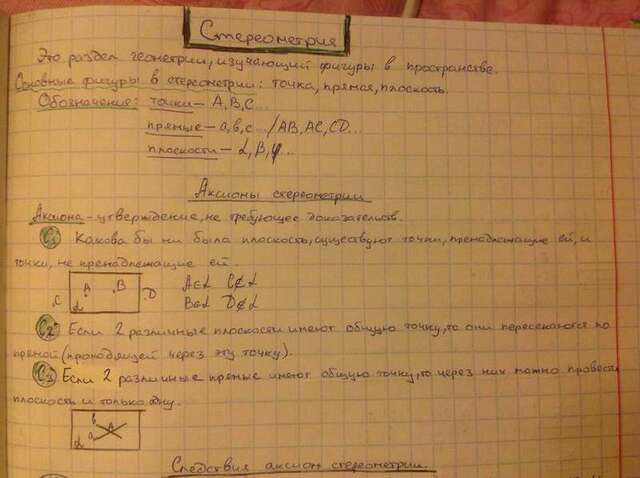 Стереометрия
Это раздел геометрии, изучающий фигуры в пространстве.
Основные фигуры в стереометрии: точка, прямая, плоскость.
Обозначения: точки – A, B, C...
прямые – a, b, c... / AB, AC, CD...
плоскости – α, β, φ...
Аксиомы стереометрии
Аксиома – утверждение, не требующее доказательств.
C1 Какова бы ни была плоскость, существуют точки, пренадлежащие ей, и
точки, не пренадлежащие ей.
C A B D A∈α C∉α
α B∈α D∉α
C2 Если 2 различные плоскости имеют общую точку, то они пересекаются по
прямой (проходящей через эту точку).
C3 Если 2 различные прямые имеют общую точку, то через них можно провести
плоскость и только одну.
b A
α a
Следствия аксиом стереометрии.